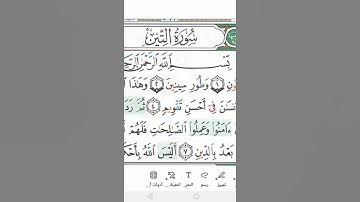 سُورَةُ التِّينِ
بِسْمِ اللَّهِ الرَّحْمَٰنِ الرَّحِ
ونِ ١ وَطُورِ سِينِينَ ٢ وَهَٰذَا
سَٰنَ فِي أَحْسَنِ تَقْوِيمٍ ٤ ثُمَّ رَدَ
ءَامَنُوا وَعَمِلُوا الصَّٰلِحَٰتِ فَلَهُمْ
بَعْدُ بِالدِّينِ ٧ أَلَيْسَ اللَّهُ بِأَحْكَ
تمييز رسم النص التعبئة ... أدوات أ...